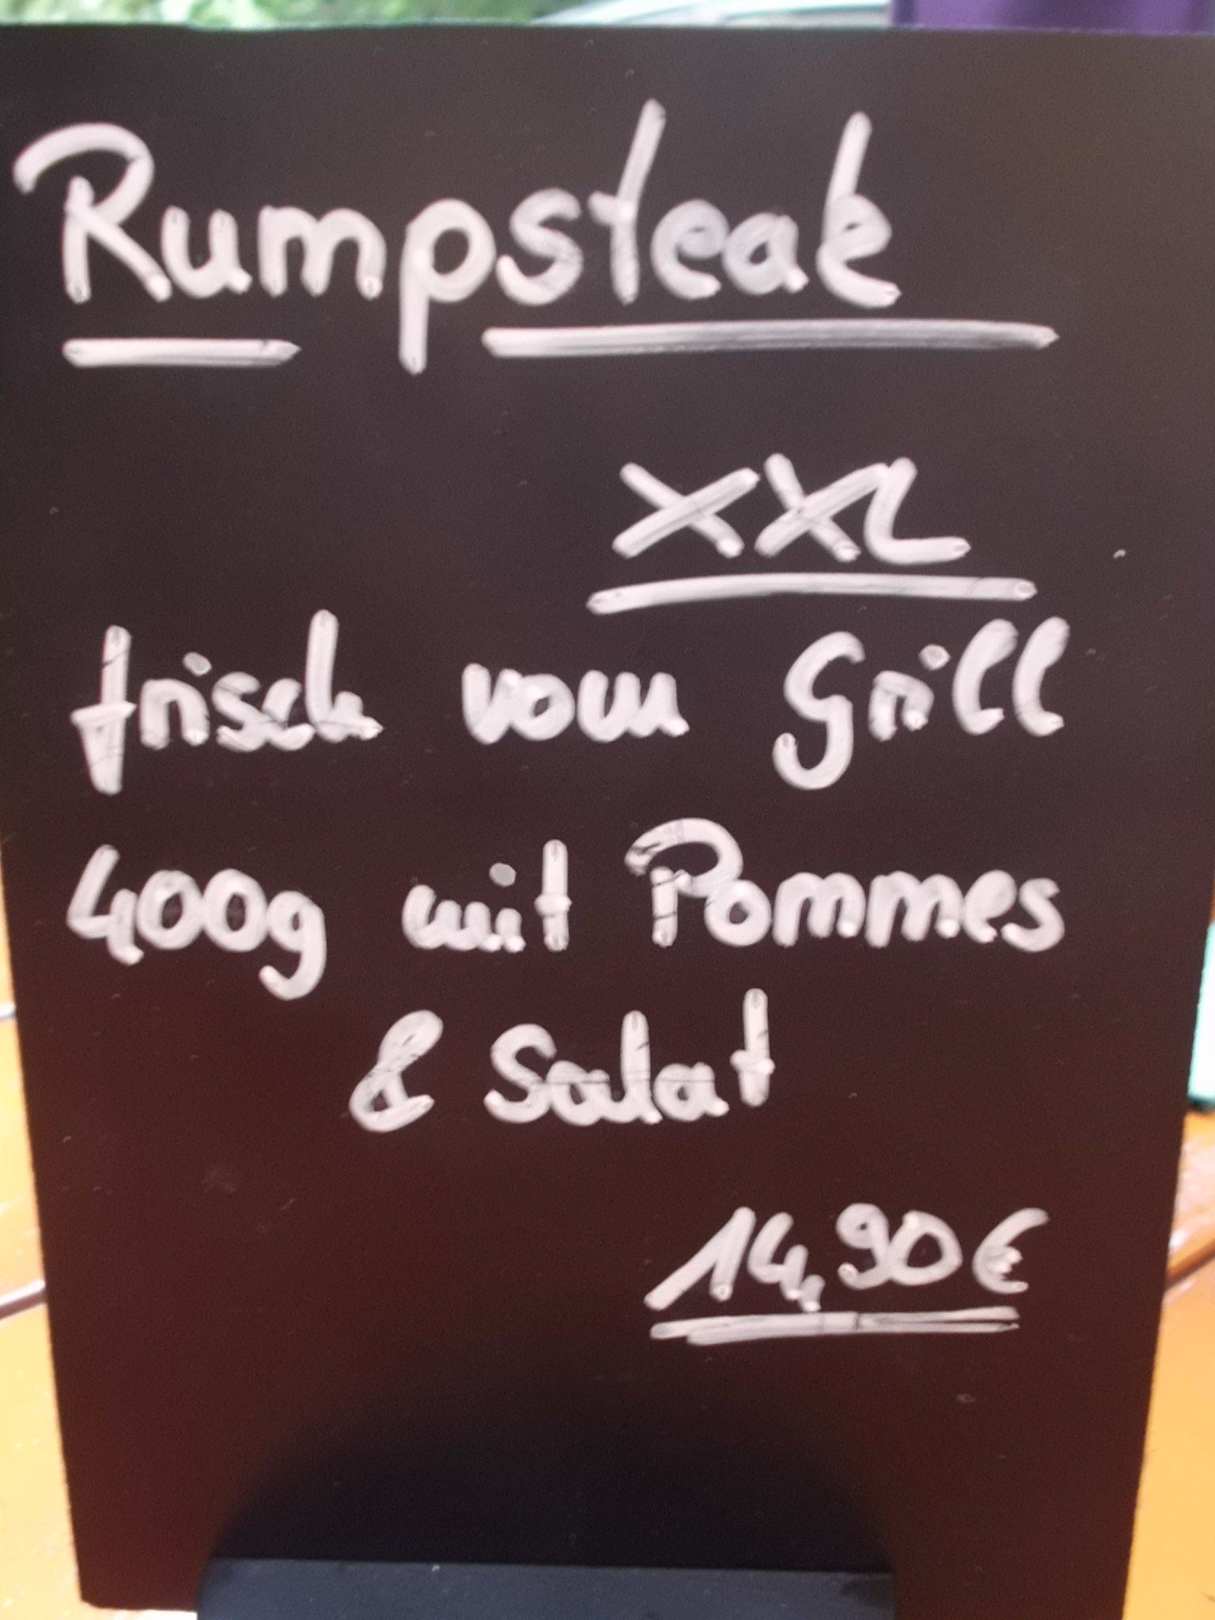 Rumpsteak
XXL
frisch vom Grill
400g mit Pommes
& Salat
14,90 €